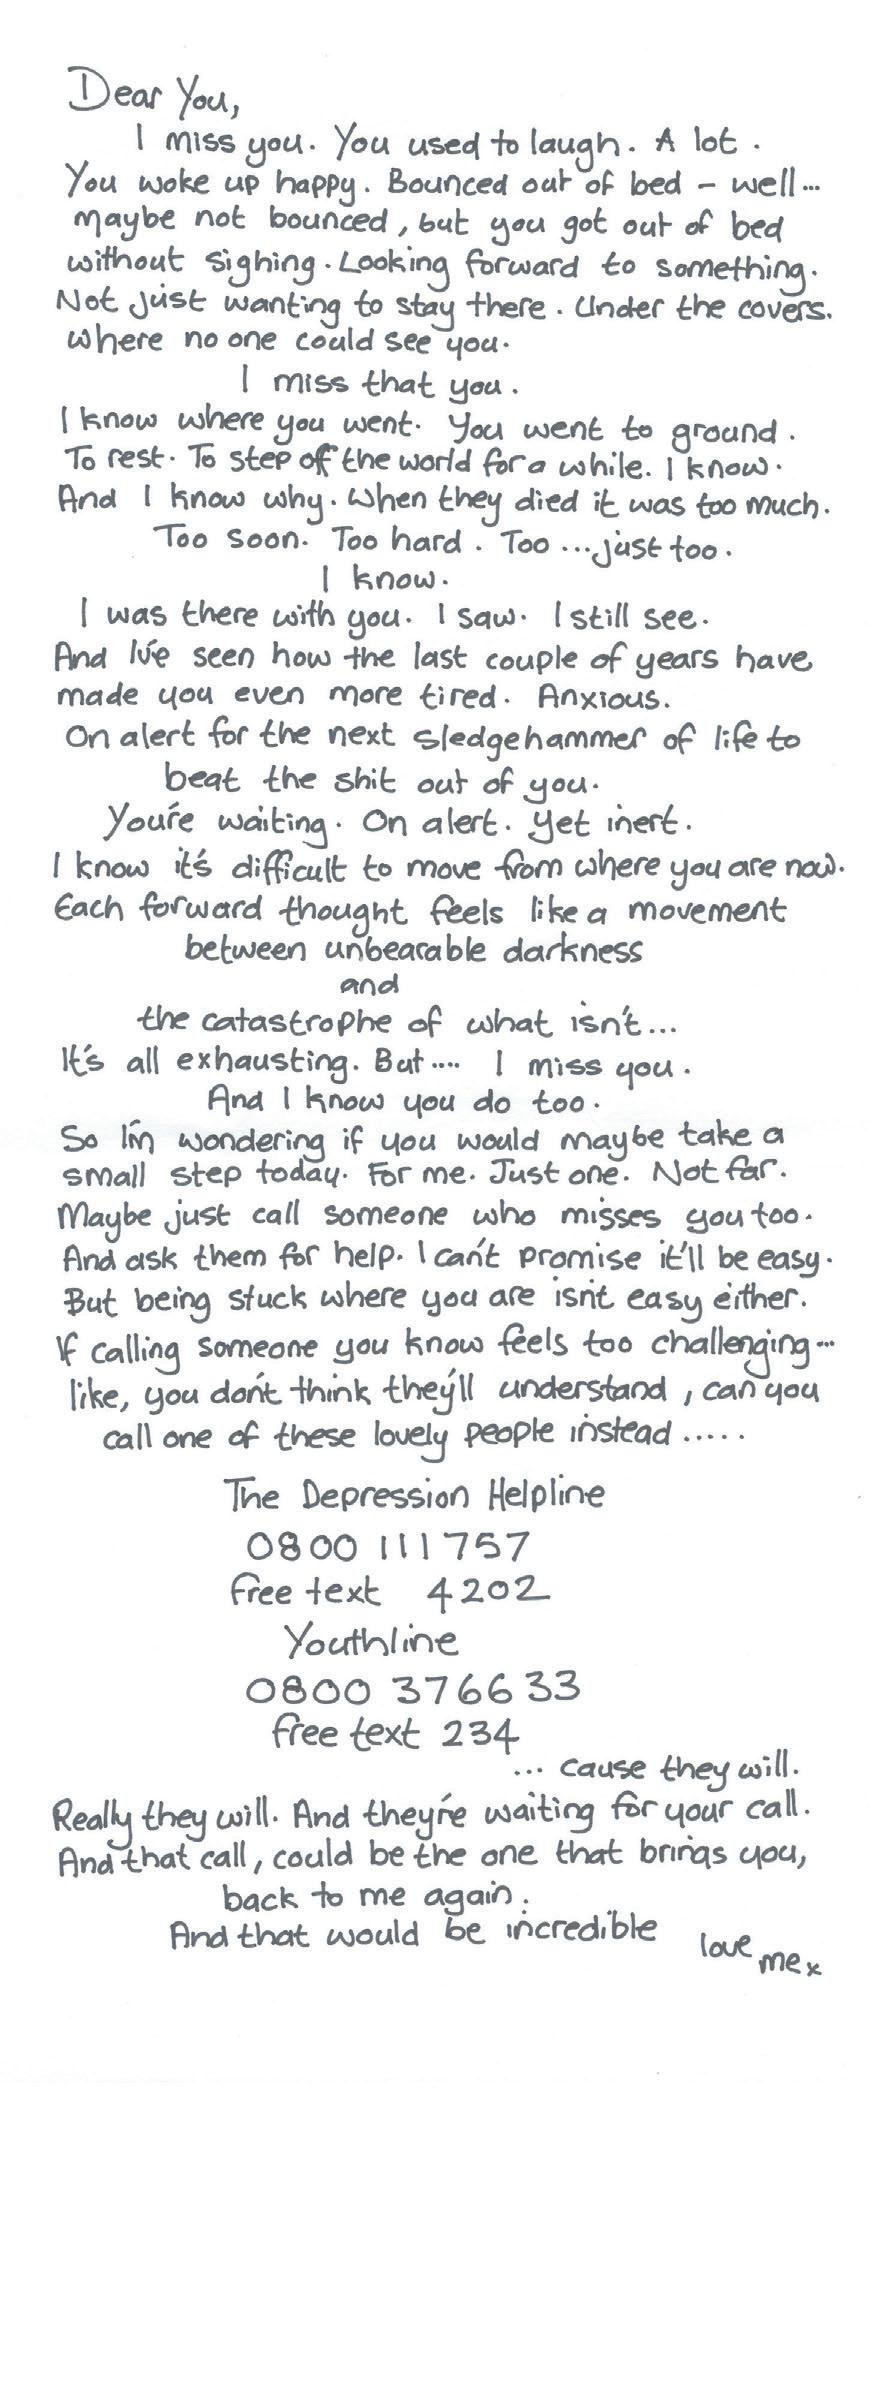 Dear You,
I miss you. You used to laugh. A lot.
You woke up happy. Bounced out of bed - well...
maybe not bounced, but you got out of bed
without sighing. Looking forward to something.
Not just wanting to stay there. Under the covers.
Where no one could see you.
I miss that you.
I know where you went. You went to ground.
To rest. To step off the world for a while. I know.
And I know why. When they died it was too much.
Too soon. Too hard. Too ...just too.
I know.
I was there with you. I saw. I still see.
And I've seen how the last couple of years have
made you even more tired. Anxious.
On alert for the next sledgehammer of life to
beat the shit out of you.
You're waiting. On alert. Yet inert.
I know it's difficult to move from where you are now.
Each forward thought feels like a movement
between unbearable darkness
and
the catastrophe of what isn't...
It's all exhausting. But.... I miss you.
And I know you do too.
So I'm wondering if you would maybe take a
small step today. For me. Just one. Not far.
Maybe just call someone who misses you too.
And ask them for help. I can't promise it'll be easy.
But being stuck where you are isn't easy either.
If calling someone you know feels too challenging...
like, you don't think they'll understand, can you
call one of these lovely people instead.....
The Depression Helpline
0800 111 757
free text 4202
Youthline
0800 376633
free text 234
... cause they will.
Really they will. And they're waiting for your call.
And that call, could be the one that brings you,
back to me again.
And that would be incredible
love
me x